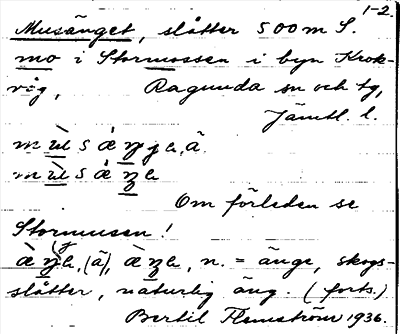 1-2.
Musänget, slåtter 500 m S.
mo i Stormossen i byn Krok-
våg, Ragunda sn och tg,
Jämtl. l.
Om förleden se
Stormusen!
n. = änge, skogs-
slåtter, naturlig äng. (forts.)
Bertil Flemström 1936.